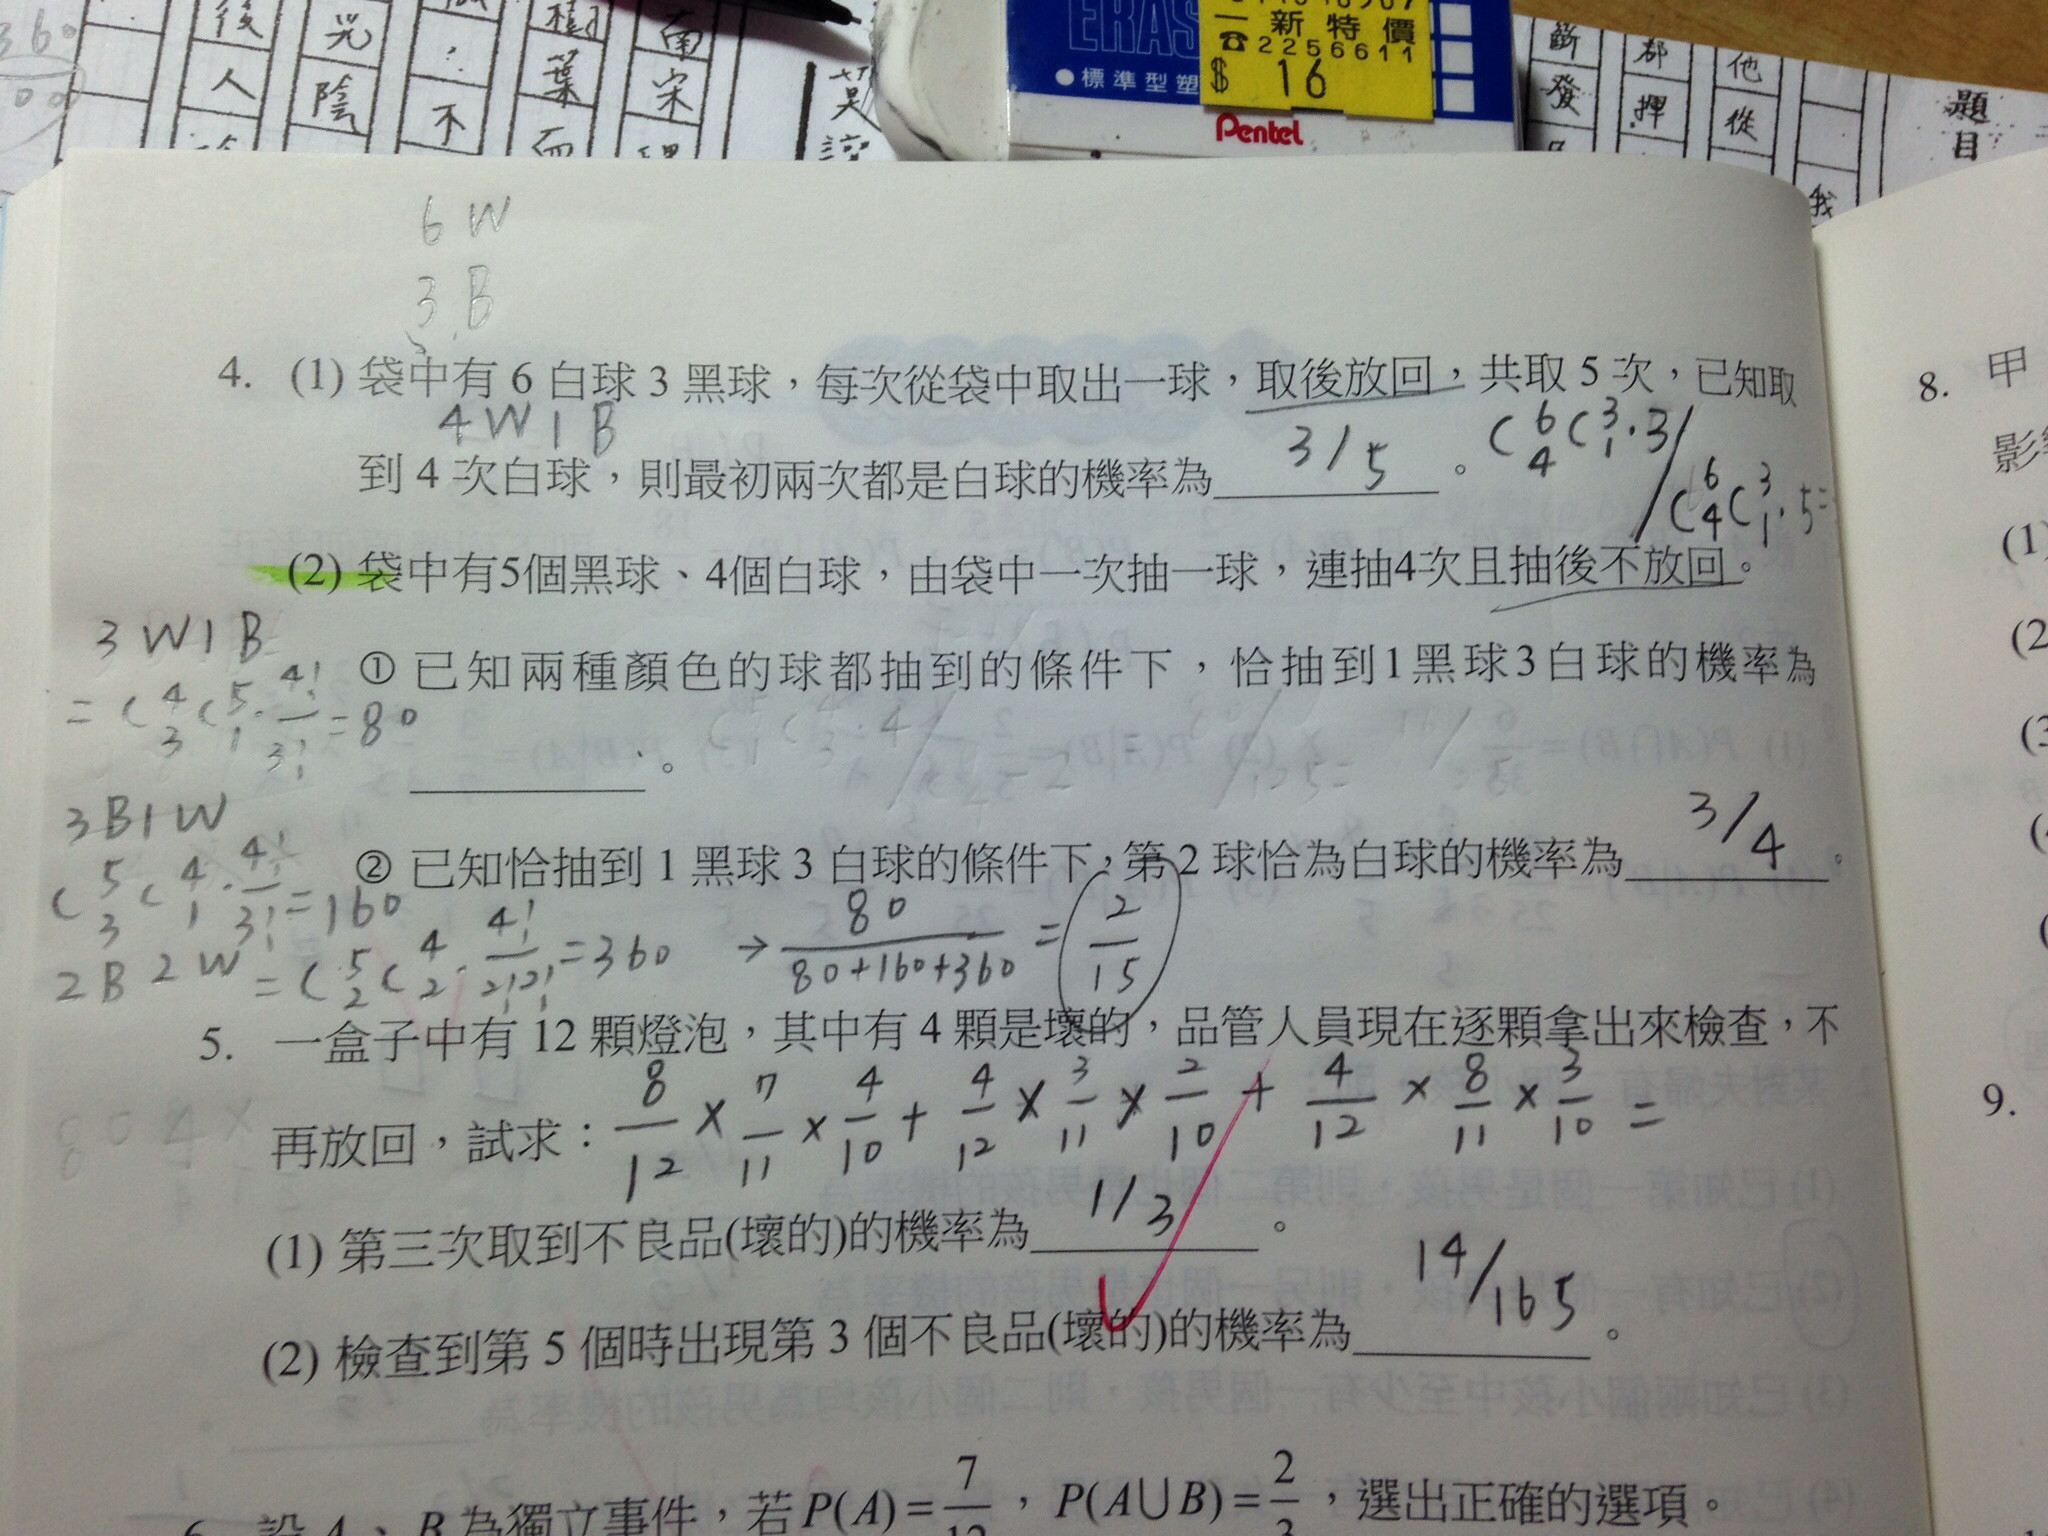 後 光 ？ 樹 南
人 陰 不 葉 宋
而
ERAS
新特價
☎2256611
$ 16
●標準型塑
Pentel
斷 都 他 題
發 揮 從 目
我
360
6W
3B
4. (1) 袋中有 6 白球 3 黑球，每次從袋中取出一球，取後放回，共取 5 次，已知取
4W1B
到 4 次白球，則最初兩次都是白球的機率為 3/5 。
C 6 4 C 3 1 · 3 / C 6 4 C 3 1 · 5 =
(2) 袋中有5個黑球、4個白球，由袋中一次抽一球，連抽4次且抽後不放回。
3W1B
= C 4 3 C 5 1 · 4!/3! = 80
① 已知兩種顏色的球都抽到的條件下，恰抽到1黑球3白球的機率為
。
3B1W
C 5 3 C 4 1 · 4!/3! = 160
② 已知恰抽到 1 黑球 3 白球的條件下，第 2 球恰為白球的機率為 3/4 。
2B2W = C 5 2 C 4 2 · 4!/2!2! = 360 → 80/80+160+360 = 2/15
5. 一盒子中有 12 顆燈泡，其中有 4 顆是壞的，品管人員現在逐顆拿出來檢查，不
再放回，試求：
8/12 × 7/11 × 4/10 + 4/12 × 3/11 × 2/10 + 4/12 × 8/11 × 3/10 =
(1) 第三次取到不良品(壞的)的機率為 1/3 。
(2) 檢查到第 5 個時出現第 3 個不良品(壞的)的機率為 14/165 。
6. 設 A、B 為獨立事件，若 P(A) = 7/12，P(A∪B) = 2/3，選出正確的選項。
8. 甲
影
(1)
(2
(3
(
(
9.